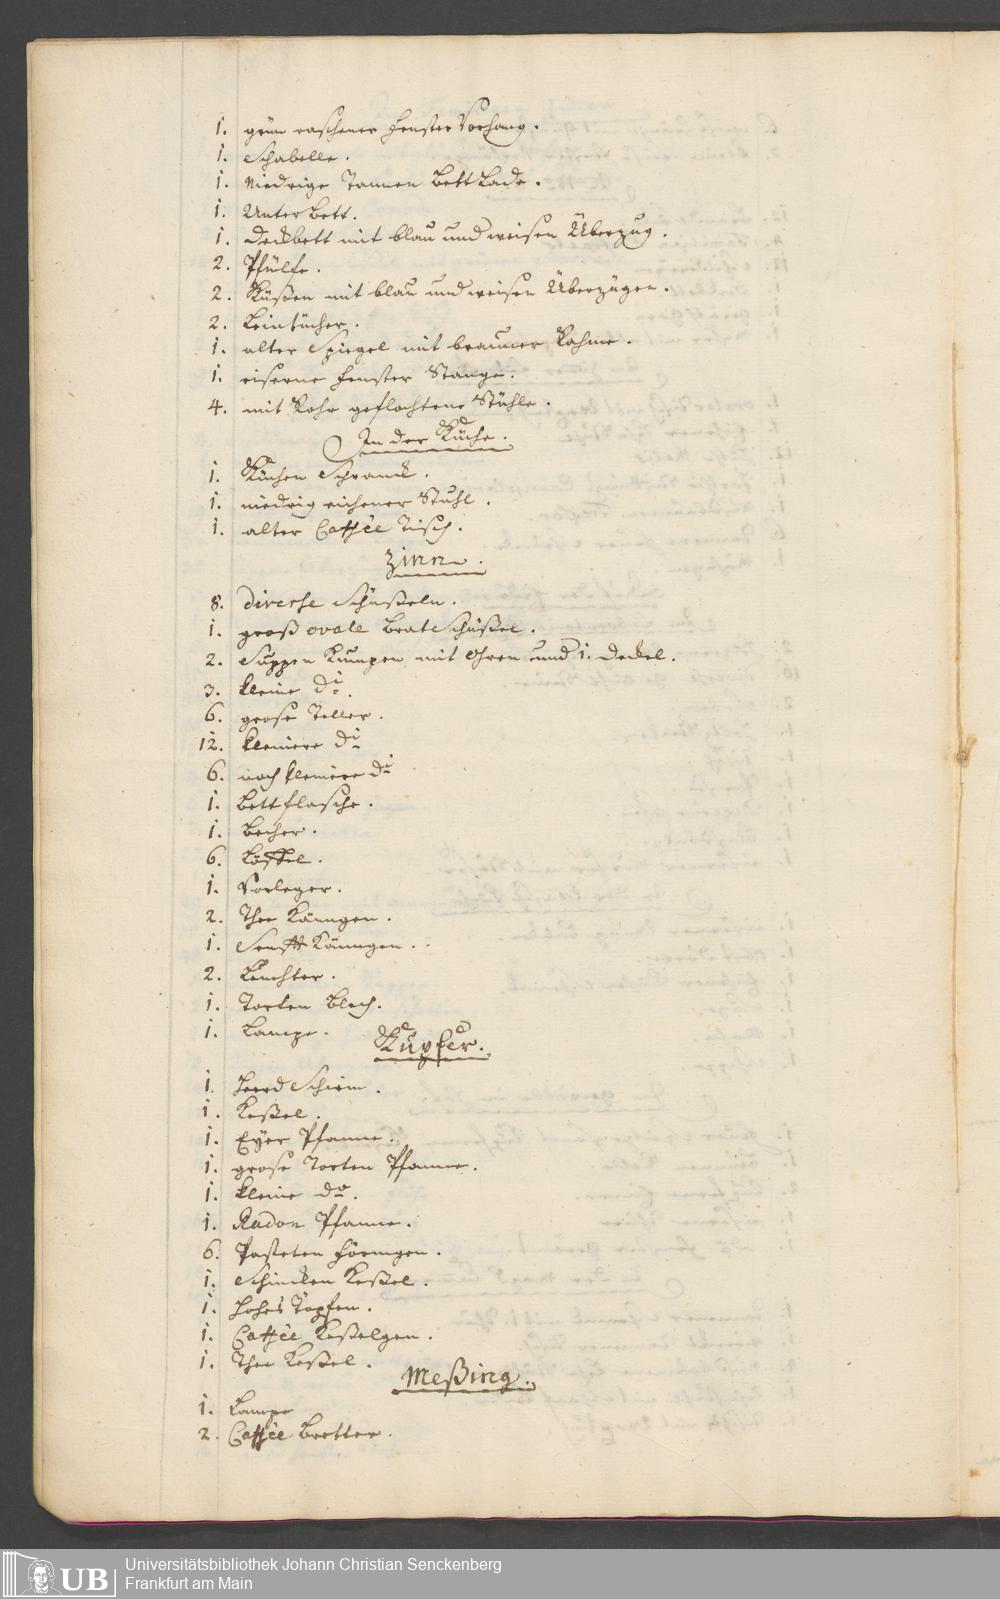 1. grün raschener Fenster Vorhang.
1. Schabelle.
1. Niedrige Tannen Bettlade.
1. Unter Bett.
1. Deckbett mit blau und weisen Überzug.
2. Pfülfe.
2. Küßen mit blau und weisen Überzügen.
2. Leintücher.
1. alter Spiegel mit brauner Rahme.
1. eiserne Fenster Stange.
4. mit Rohr geflochtene Stühle.
In der Küche.
1. Küchen Schranck.
1. niedrig eichener Stuhl.
1. alter Caffée Tisch.
Zinn.
8. diverse Schüßeln.
1. groß ovale Brat Schüßel.
2. Suppen Kumpen mit Ohren und 1. Deckel.
3. kleine di.
6. grose Teller.
12. kleinere di
6. noch kleinere di
1. Bettflasche.
1. Becher.
6. Löffel.
1. Vorleger.
2. Thee Känngen.
1. Senfft Känngen.
2. Leuchter.
1. Torten Blech.
1. Lampe.
Kupfer.
1. Heerd Schirm.
1. Keßel.
1. Eÿer Pfanne.
1. grose Torten Pfanne.
1. kleine do.
1. Radon Pfanne.
6. Pasteten Förmgen.
1. Schincken Keßel.
1. hohes Töpfen.
1. Caffée Keßelgen.
1. Thee Keßel.
Meßing.
1. Lampe
2. Caffée Bretter.
UB
Universitätsbibliothek Johann Christian Senckenberg
Frankfurt am Main